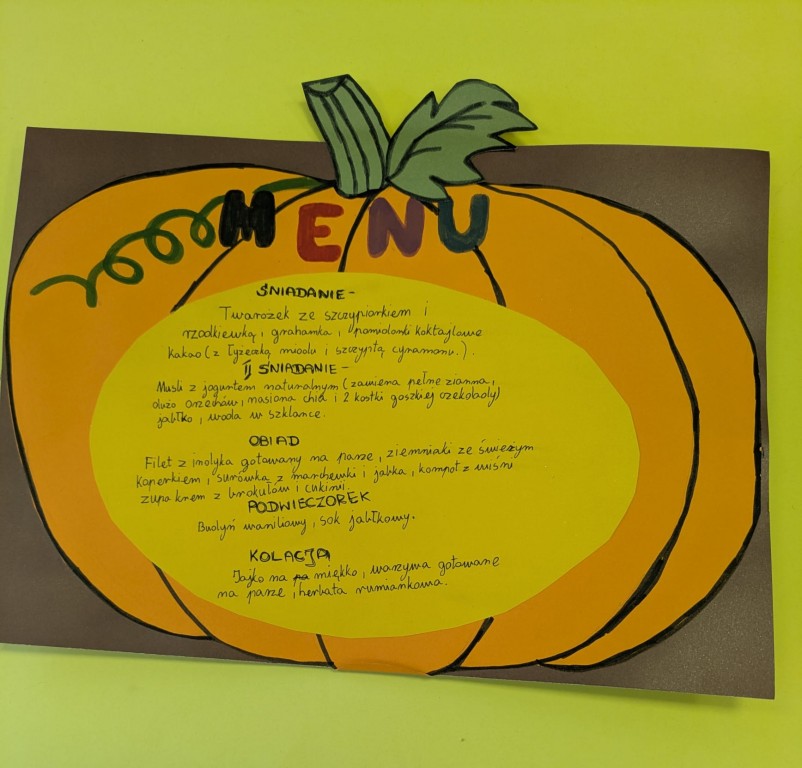 MENU
ŚNIADANIE-
Twarożek ze szczypiorkiem i
rzodkiewką, grahamka, pomidorki koktajlowe
kakao (z łyżeczką miodu i szczyptą cynamonu.).
II ŚNIADANIE-
Musli z jogurtem naturalnym (zawiera pełne ziarna,
dużo orzechów, nasiona chia i 2 kostki gorzkiej czekolady)
jabłko, woda w szklance.
OBIAD
Filet z indyka gotowany na parze, ziemniaki ze świeżym
koperkiem, surówka z marchewki i jabłka, kompot z wiśni
zupa krem z brokułów i cukinii.
PODWIECZOREK
Budyń waniliowy, sok jabłkowy.
KOLACJA
Jajko na miękko, warzywa gotowane
na parze, herbata rumiankowa.